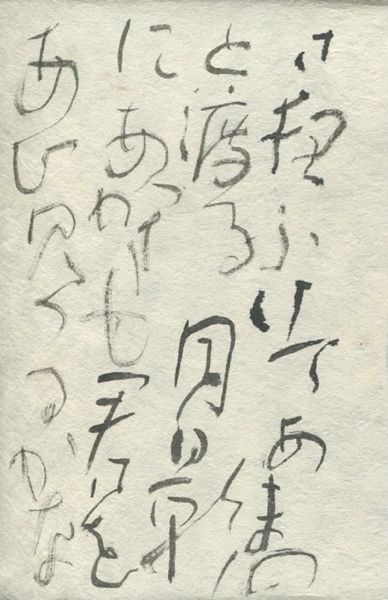 さ夜ふけてあまの
と渡る月影
にあかすも君を
あひ見つるかな